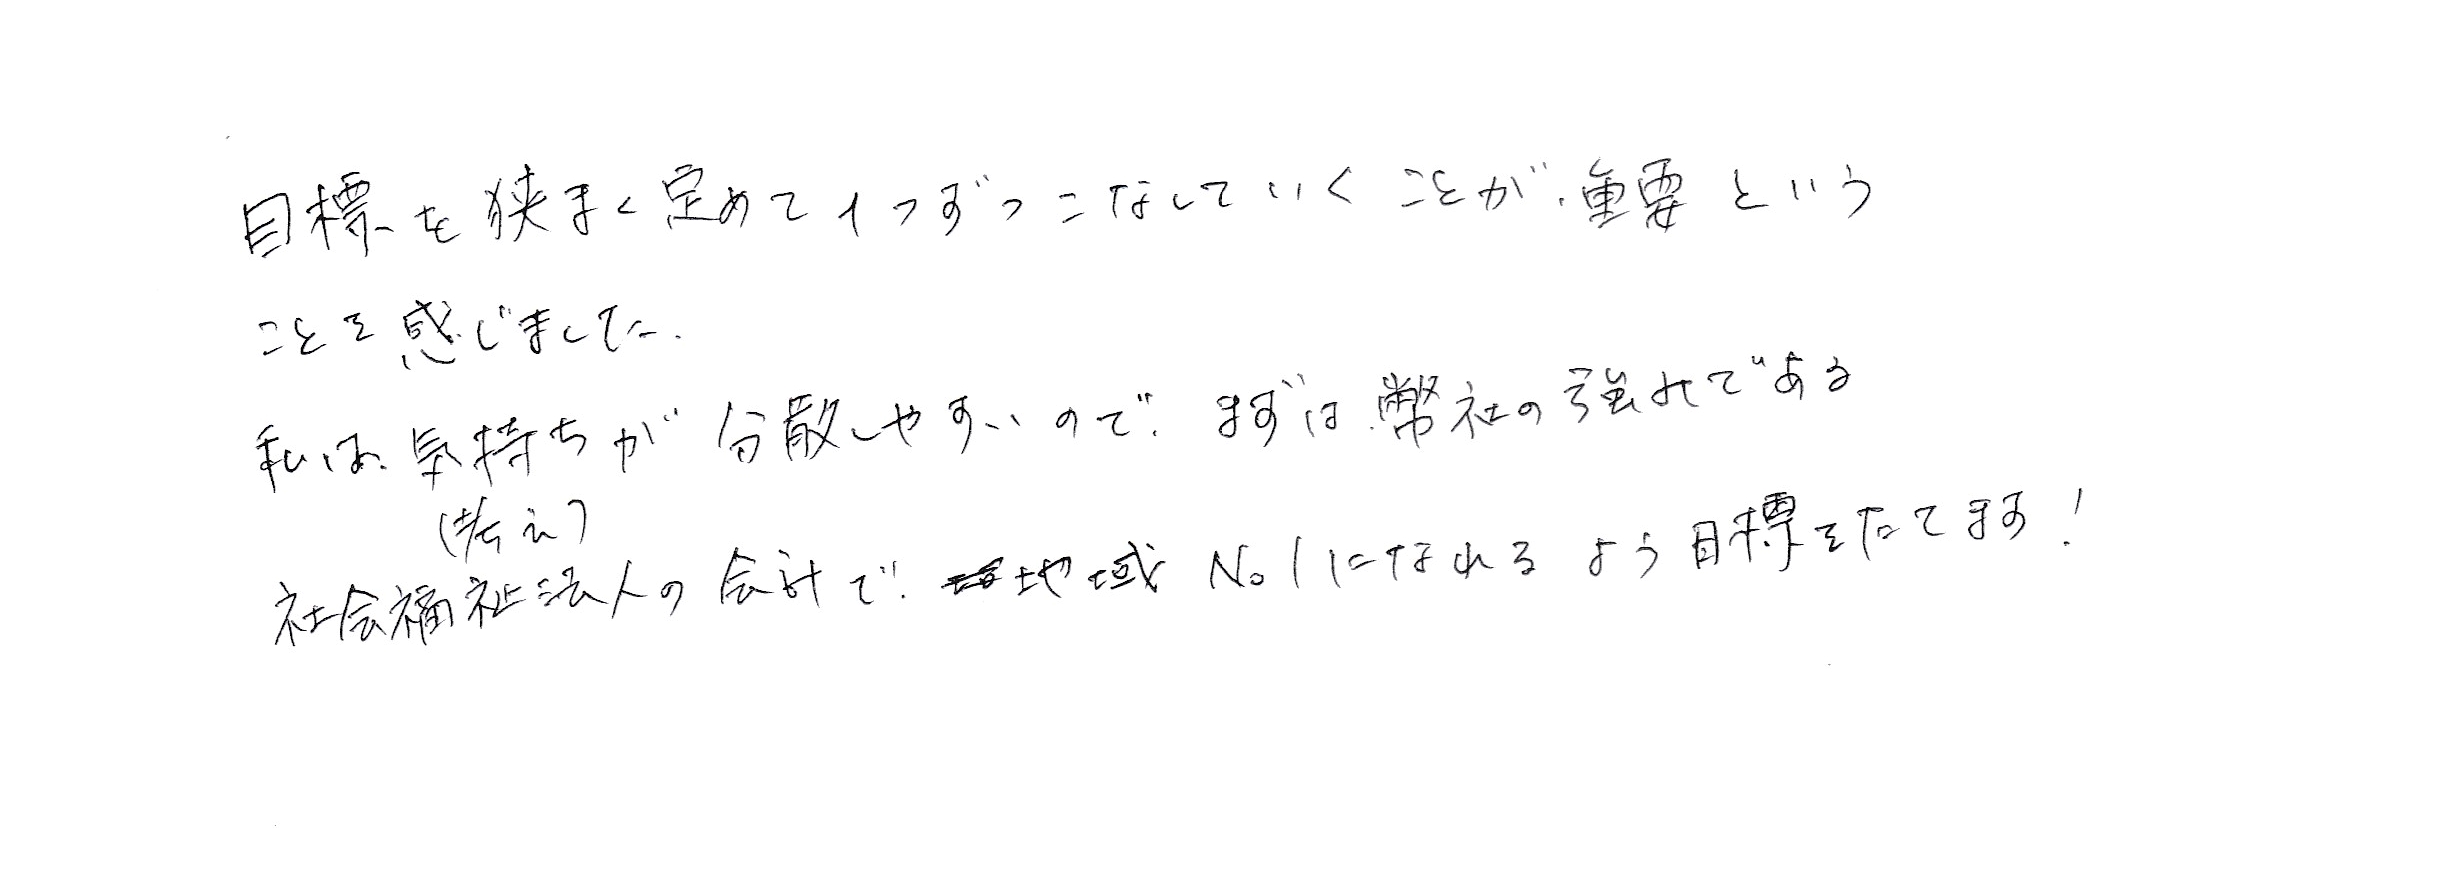 目標を狭まく定めて1つずつこなしていくことが、重要という
ことを感じました.
私は、気持ちが分散しやすいので、まずは、弊社の強みである
(考え)
社会福祉法人の会計で、地域No.1になれるよう目標をたてます!